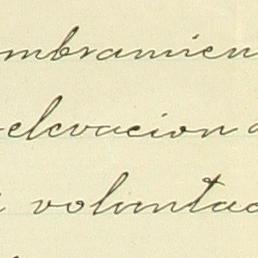 mbramien
elevacion a
voluntad